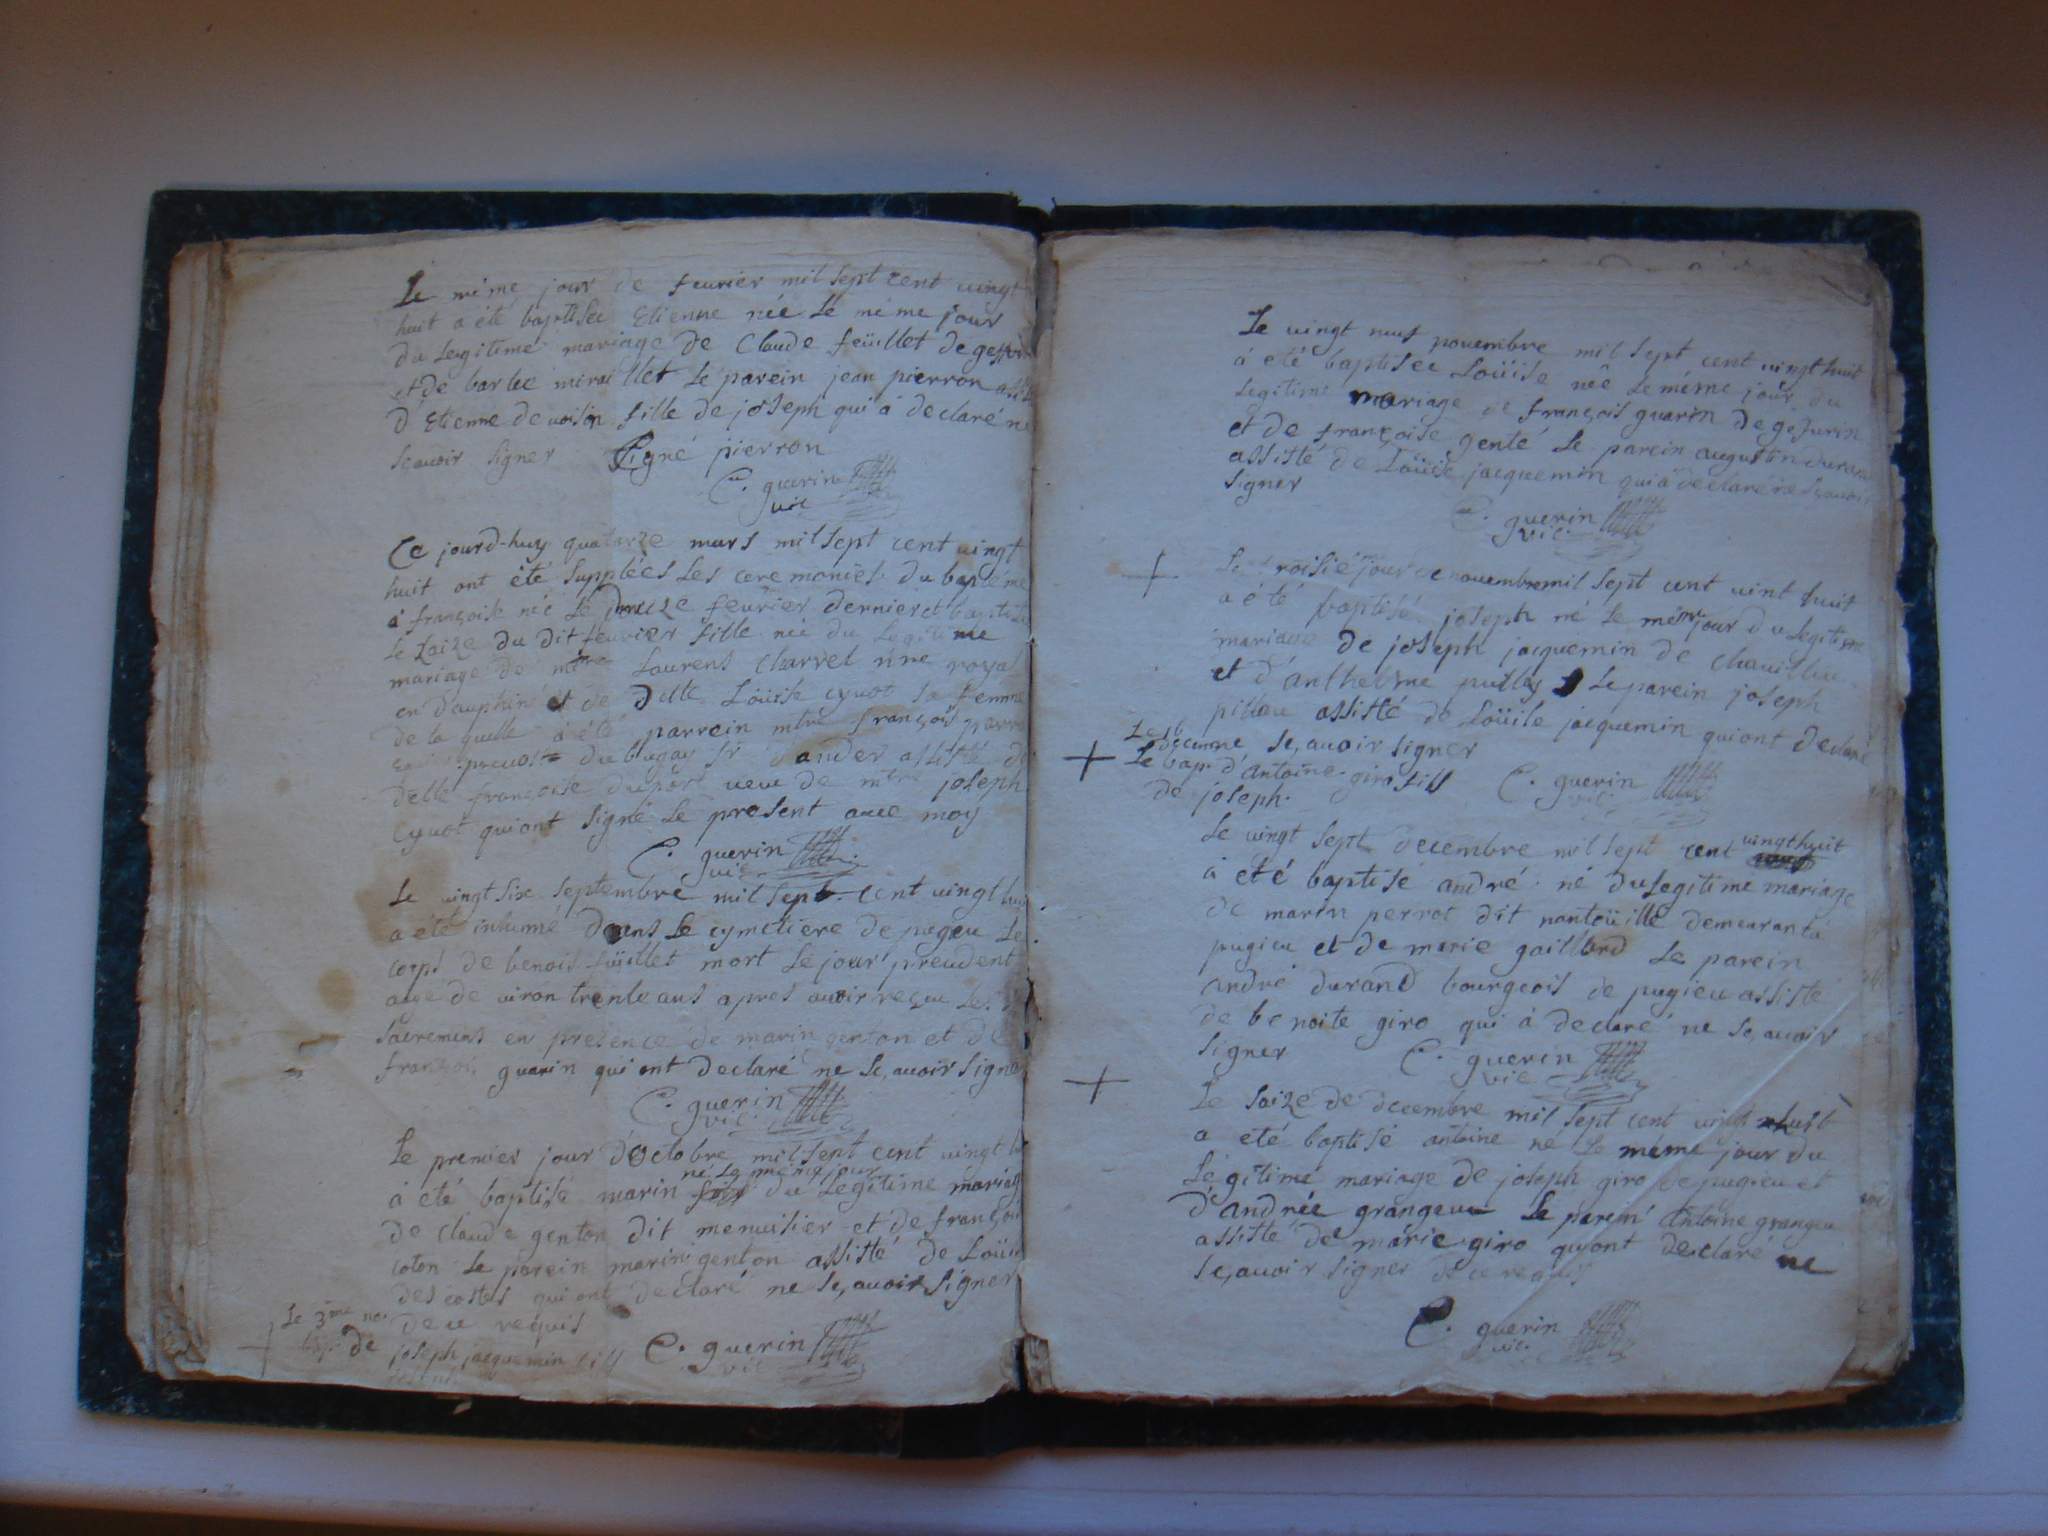 Le même jour de feurier mil sept cent uingt
huit a été baptisée Etienne née Le même jour
du Legitime mariage de Claude feüillet de
et de barbe miraillet Le parein jean pierron
d'Etienne de uoisin fille de joseph qui à declaré
sçauoir signer Signé pierron
C. guerin
uic
Ce jourd-huy quatorze mars mil sept cent uingt
huit ont été supplées Les ceremonies du baptéme
à françoise née Le feurier dernier et baptisée
Le saize du dit feurier fille née du Legitime
mariage de Laurens Charvet royal
en dauphiné et de delle Loüise cyuot sa femme
de la quelle à été parrein françois
preuost du bugay Sr d'ander assisté de
delle françoise duport ueuue de joseph
cyuot qui ont signé Le present auec moy
C. guerin
uic
Le uingt six septembre mil sept cent uingt huit
a été inhumé dans Le cymetiere de pugeu Le
corps de benois feüillet mort Le jour
agé de uiron trente ans apres auoir reçeu Les
sacremens en presence de marin genton et de
françois guarin qui ont declaré ne sç,auoir signer
C. guerin
uic
Le premier jour d'octobre mil sept cent uingt
né Le même jour
à été baptisé marin fils du Legitime mariage
de claude genton dit menuisier et de françoise
coton Le parein marin genton assisté de Loüise
des costes qui ont declaré ne sç,auoir signer
de ce requis
C. guerin
uic
Le 3me no.
bap. de joseph jacquemin fils
joseph
Le uingt neuf nouembre mil sept cent uingt huit
à été baptisée Loüise née Le même jour du
Legitime mariage de françois guarin de
et de françoise genté Le parein augustin durand
assisté de Loüise jacquemin qui à declaré ne sçauoir
signer
C. guerin
uic.
Le troisie jour de nouembre mil sept cent uint huit
a été baptisé joseph né Le même jour du Legitime
mariage de joseph jacquemin de
et d'anthelme Le parein joseph
pillou assisté de Loüise jacquemin qui ont declaré
ne sç,auoir signer
C. guerin
uic
Le 16
decembre
Le bap. d'antoine giro fils
de joseph.
Le uingt sept decembre mil sept cent uingt huit
à été baptisé andré né du Legitime mariage
de marin perrot dit nantoüille demeurant à
pugieu et de marie gaillard Le parein
andré durand bourgeois de pugieu assisté
de benoite giro qui à declaré ne sç,auoir
signer
C. guerin
uic
Le saize de decembre mil sept cent uingt huit
a été baptisé antoine né Le même jour du
Légitime mariage de joseph giro de pugieu et
d'andrée grangeu Le parein antoine grangeu
assisté de marie giro qui ont declaré ne
sç,auoir signer de ce requis
C. guerin
uic.